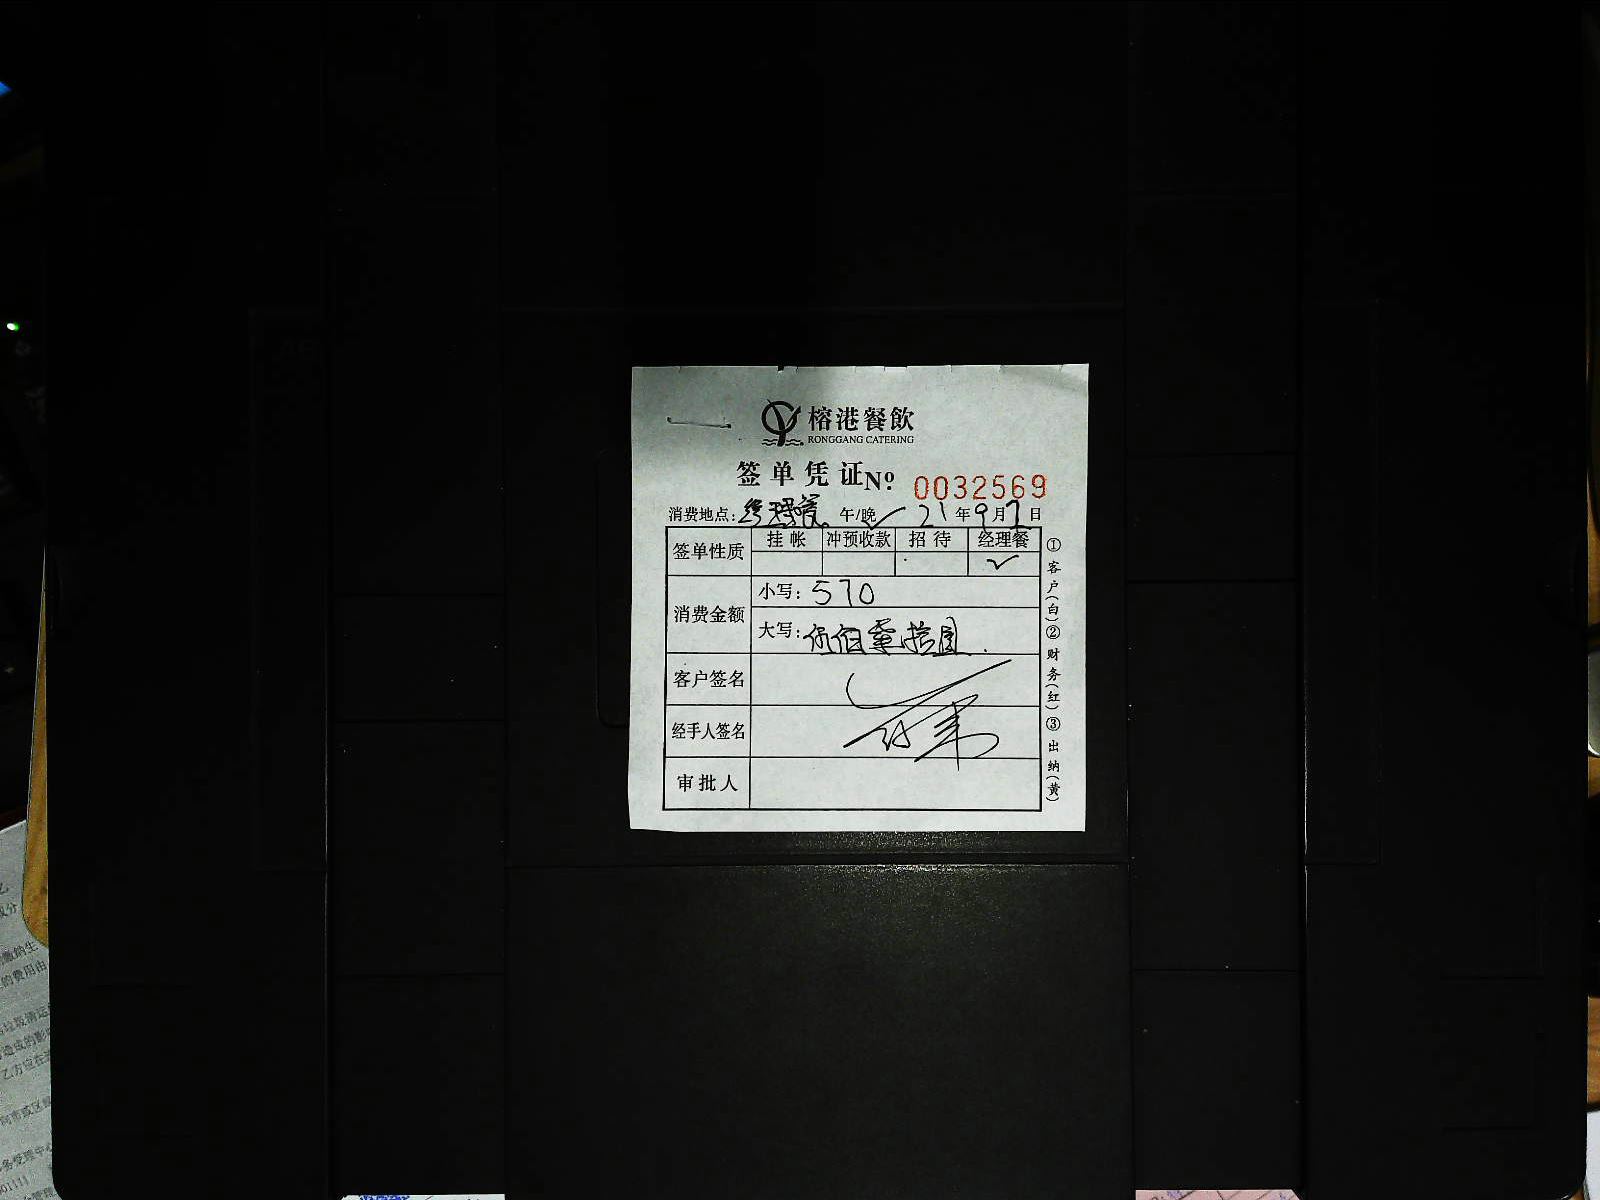 榕港餐飲
RONGGANG CATERING
签单凭证 Nº 0032569
消费地点: 经理餐 午/晚 ✓ 21 年 9 月 1 日
签单性质 挂帐 冲预收款 招待 经理餐
✓
消费金额 小写: 570
大写: 伍佰柒拾圆
客户签名
经手人签名
审批人
①客户(白)②财务(红)③出纳(黄)
缴纳生
的费用由
造成的影
乙方应在
务受理中心